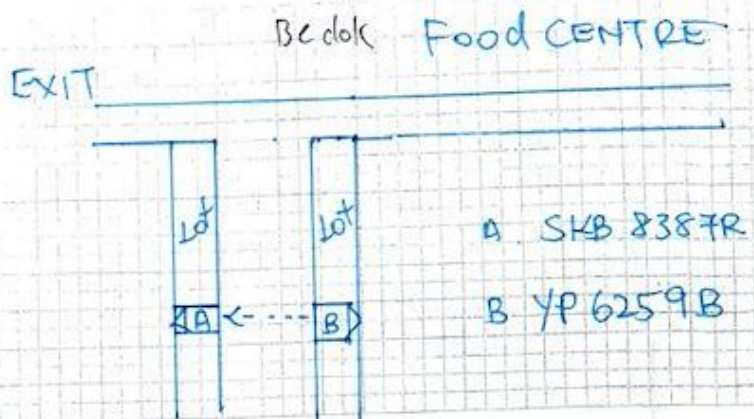 Bedok Food CENTRE
EXIT
Lot Lot
A SKB 8387R
A B
B YP 6259B